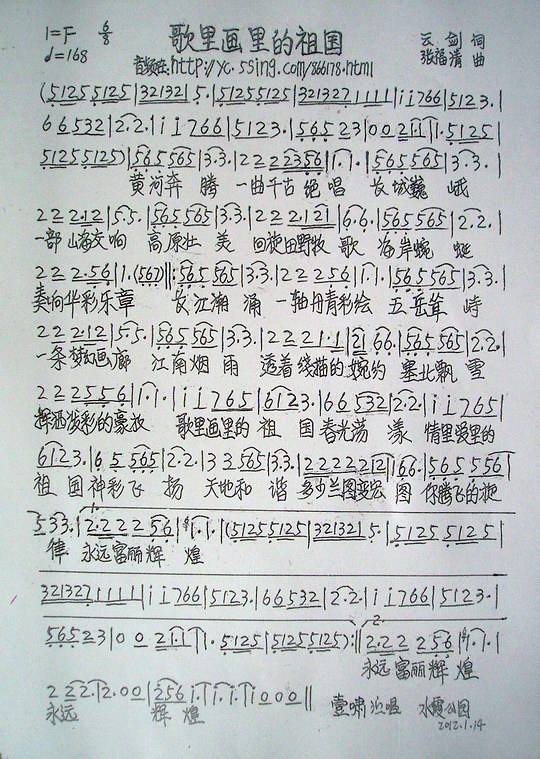 1=F 6/8 歌里画里的祖国 云剑 词
♩=168 音频在:http://yc.5sing.com/866178.html 张福清 曲
(5125 5125 | 321321 5. | 5125 5125 | 321327 1111 | i i 766 | 5123. |
66532 | 2.2. | i i 766 | 5123. | 56523 | 002 1.1 | 1. 5125 |
5125 5125) | 565 565 | 3.3. | 222 2356 | 1.1. | 565 565 | 3.3. |
黄河奔腾 一曲千古绝唱 长城巍峨
222 2.12 | 5.5. | 565 565 | 3.3. | 222 2.121 | 6.6. | 565 565 | 2.2. |
一部山海交响 高原壮美 回旋田野牧歌 海岸蜿蜒
222 2.56 | 1.(567) ||: 565 565 | 3.3. | 222 256 | 1.1. | 565 565 | 3.3. |
奏响华彩乐章 长江潮涌 一轴丹青彩绘 五岳耸峙
222 2.12 | 5.5. | 565 565 | 3.3. | 222 1.1 | 21 66. | 565 565 | 2.2. |
一条梦幻画廊 江南烟雨 透着线描的婉约 塞北飘雪
222 2556 | 1.1. | i i 765 | 6123. | 66 532 | 2.2. | i i 765 |
挥洒泼彩的豪放 歌里画里的祖国春光荡漾 情里爱里的
6123. | 65 565 | 2.2. | 33 565 | 3.3. | 222 2212 | 66. | 565 556 |
祖国神彩飞扬 天地和谐 多少兰图变宏图 你腾飞的旋
533. | 2.222 56 | 1.1. | (5125 5125 | 321321 5. | 5125 5125 |
律 永远富丽辉煌
321327 1111 | i i 766 | 5123. | 66532 | 2.2. | i i 766 | 5123. |
56523 | 002 1.1 | 1. 5125 | 5125 5125) :|| 2.222 256 | 1.1. |
永远富丽辉煌
2 222. | 2.00 | 256 i. | i.i. | i000 ||
永远 辉煌 水霞公园
2012.1.14